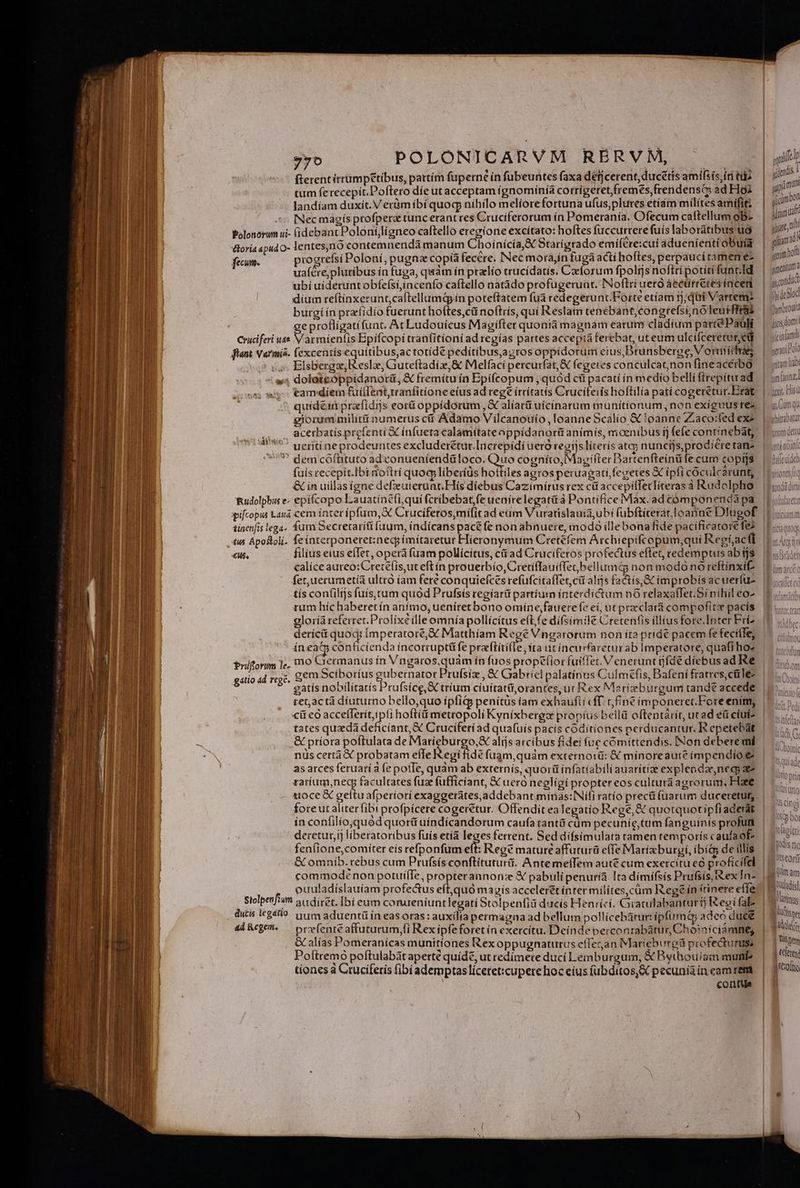 770 POLONICARVM RERVM,
sterent irrumpētibus, partim superne in subeuntes saxa deijcerent, ducētis amissis, in tu
tum se recepit. Postero die ut acceptam ignominiā corrigeret, fremēs, frendensq; ad Hol
landiam duxit. Verùm ibi quoq; nihilo meliore fortuna usus, plures etiam milites amisit.
Nec magis prosperæ tunc erant res Cruciferorum in Pomerania. Ofecum castellum ob-
Polonorum ui- sidebant Poloni, ligneo castello eregione excitato: hostes succurrere suis laborātibus uo
ctoria apud O- lentes, nō contemnendā manum Choinicia, & Starigrado emisere: cui aduenienti obuiā
secum. progressi Poloni, pugnæ copiā fecére. Nec mora, in fugā acti hostes, perpauci tamen e-
uasére, pluribus in fuga, quàm in prælio trucidatis. Cæsorum spolijs nostri potiti sunt. Id
ubi uiderunt obsessi, incenso castello natādo profugerunt. Nostri uerò accurrētes incen
dium restinxerunt, castellumq; in potestatem suā redegerunt. Forte etiam ij, qui Vartem-
burgi in præsidio fuerunt hostes, cū nostris, qui Reslam tenebant, congressi, nō leui strag
ge profligati sunt. At Ludouicus Magister quoniā magnam earum cladium partē Pauli
Cruciferi uas Varmiensis Episcopi transitioni ad regias partes acceptā ferebat, ut eum ulcisceretur, cū
stant Varmiā. sexcentis equitibus, ac totidē peditibus, agros oppidorum eius, Brunsbergæ, Vormitæ,
Elsbergæ, Reslæ, Gutestadiæ, & Melsaci percursat, & segetes conculcat, non sine acerbo
dolore oppidanorū, & fremitu in Episcopum, quòd cū pacati in medio belli strepitu ad
eam diem fuissent, transitione eius ad regē irritatis Cruciferis hostilia pati cogerētur. Erāt
quidem in præsidijs eorū oppidorum, & aliarū uicinarum munitionum, non exiguus re-
giorum militū numerus cū Adamo Vilcanouio, Ioanne Scalio & Ioanne Zaco: sed ex-
acerbatis præsenti & insueta calamitate oppidanorū animis, mœnibus ij sese continebāt,
ueriti ne prodeuntes excluderētur. Increpidi uerò regijs literis atq; nuncijs, prodiére tan-
dem cōstituto ad conueniendū loco. Quo cognito, Magister Bartensteinū se cum copijs
suis recepit. Ibi nostri quoq; liberiùs hostiles agros peruagati, segetes & ipsi cōculcārunt,
& in uillas igne desæuierunt. His diebus Cazimirus rex cū accepisset literas à Rudolpho
Rudolphus e- episcopo Lauatinēsi, qui scribebat, se uenire legatū à Pontifice Max. ad componendā pa
piscopus Lauā cem inter ipsum, & Cruciferos, misit ad eum Vuratislauiā, ubi substiterat, Ioannē Dlugos
tinensis lega- sum Secretariū suum, indicans pacē se non abnuere, modò ille bona fide pacificatorē se-
tus Apostoli- se interponeret: neq; imitaretur Hieronymum Cretēsem Archiepiscopum, qui Regi, ac si
cus. filius eius esset, operā suam pollicitus, cū ad Cruciferos profectus esset, redemptus ab ijs
calice aureo: Cretēsis, ut est in prouerbio, Cretissauisset, bellumq; non modò nō restinxis-
set, uerumetiā ultrò iam ferè conquiescēs resuscitasset, cū alijs factis, & improbis ac uersu-
tis consilijs suis, tum quòd Prussis regiarū partium interdictum nō relaxasset. Si nihil eo-
rum hic haberet in animo, ueniret bono omine, fauere se ei, ut præclarā compositæ pacis
gloriā referret. Prolixè ille omnia pollicitus est, se dissimilē Cretensis illius fore. Inter Fri-
dericū quoq; Imperatorē, & Matthiam Regē Vngarorum non ita pridē pacem se fecisse,
in eaq; conficienda incorruptū se præstitisse, ita ut incusaretur ab Imperatore, quasi ho-
Prussorum le- mo Germanus in Vngaros, quàm in suos propēsior fuisset. Venerunt ijsdē diebus ad Re
gatio ad regē. gem Sciborius gubernator Prussiæ, & Gabriel palatinus Culmēsis, Baseni fratres, cū le-
gatis nobilitatis Prussicę, & trium ciuitatū, orantes, ut Rex Mariæburgum tandē accede
ret, ac tā diuturno bello, quo ipsiq; penitùs iam exhausti essēt, finē imponeret. Fore enim,
cū eò accesserit, ipsi hostiū metropoli Kynixbergæ propiùs bellū ostentārit, ut ad eū ciui-
tates quædā deficiant, & Cruciferi ad quasuis pacis cōditiones perducantur. Repetebāt
& priora postulata de Marieburgo, & alijs arcibus fidei suę cōmittendis. Non debere mi
nùs certā & probatam esse Regi fidē suam, quàm externorū: & minore autē impendio e-
as arces seruari à se posse, quàm ab externis, quorū insatiabili auaritiæ explendæ, neq; æ-
rarium, neq; facultates suæ sufficiant, & uerò negligi propter eos culturā agrorum. Hæc
uoce & gestu asperiori exaggerātes, addebant minas: Nisi ratio precū suarum duceretur,
fore ut aliter sibi prospicere cogerētur. Offendit ea legatio Regē, & quotquot ipsi aderāt
in consilio, quòd quorū uindicandorum causa tantū cùm pecunię, tum sanguinis profun
deretur, ij liberatoribus suis etiā leges ferrent. Sed dissimulata tamen temporis causa of-
fensione, comiter eis responsum est: Regē maturè affuturū esse Mariæburgi, ibiq; de illis
& omnib. rebus cum Prussis constituturū. Ante messem autē cum exercitu eò proficisci
commodē non potuisse, propter annonæ & pabuli penuriā. Ita dimissis Prussis, Rex In-
ouuladislauiam profectus est, quò magis accelerēt inter milites, cùm Regē in itinere esse
Stolpensium audirēt. Ibi eum conueniunt legati Stolpensiū ducis Henrici. Gratulabantur ij Regi fal-
ducis legatio uum aduentū in eas oras: auxilia permagna ad bellum pollicebātur: ipsumq; adeò ducē
ad Regem. præsentē affuturum, si Rex ipse foret in exercitu. Deinde percontabātur, Choiniciamne,
& alias Pomeranicas munitiones Rex oppugnaturus esset, an Marieburgū profecturus.
Postremò postulabāt apertē quidē, ut redimere duci Lemburgum, & Bythouiam muni-
tiones à Cruciferis sibi ademptas liceret: cupere hoc eius subditos, & pecuniā in eam rem
contu-